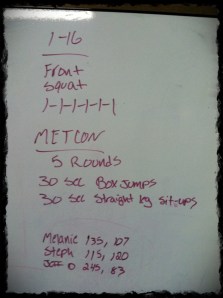 1-16
Front
Squat
1-1-1-1-1-1-1
METCON
5 Rounds
30 sec Box Jumps
30 sec Straight leg sit-ups
Melanie 135, 107
Steph 115, 120
Jeff D 245, 83